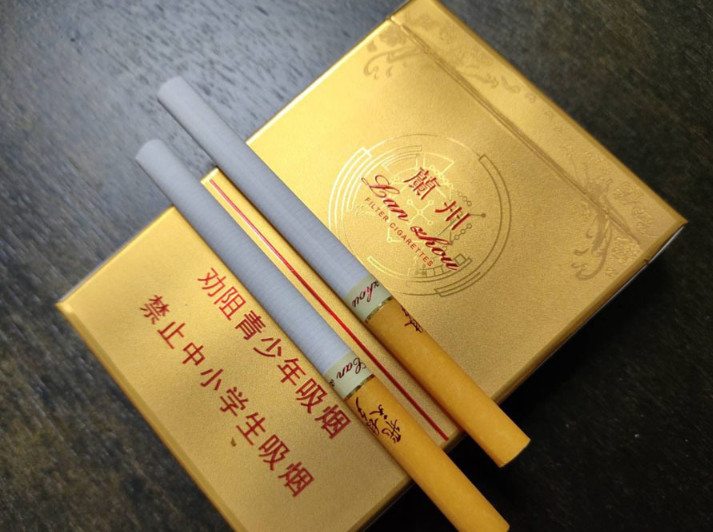 蘭州
Lan zhou
FILTER CIGARETTES
劝阻青少年吸烟
禁止中小学生吸烟
zhou
Lan